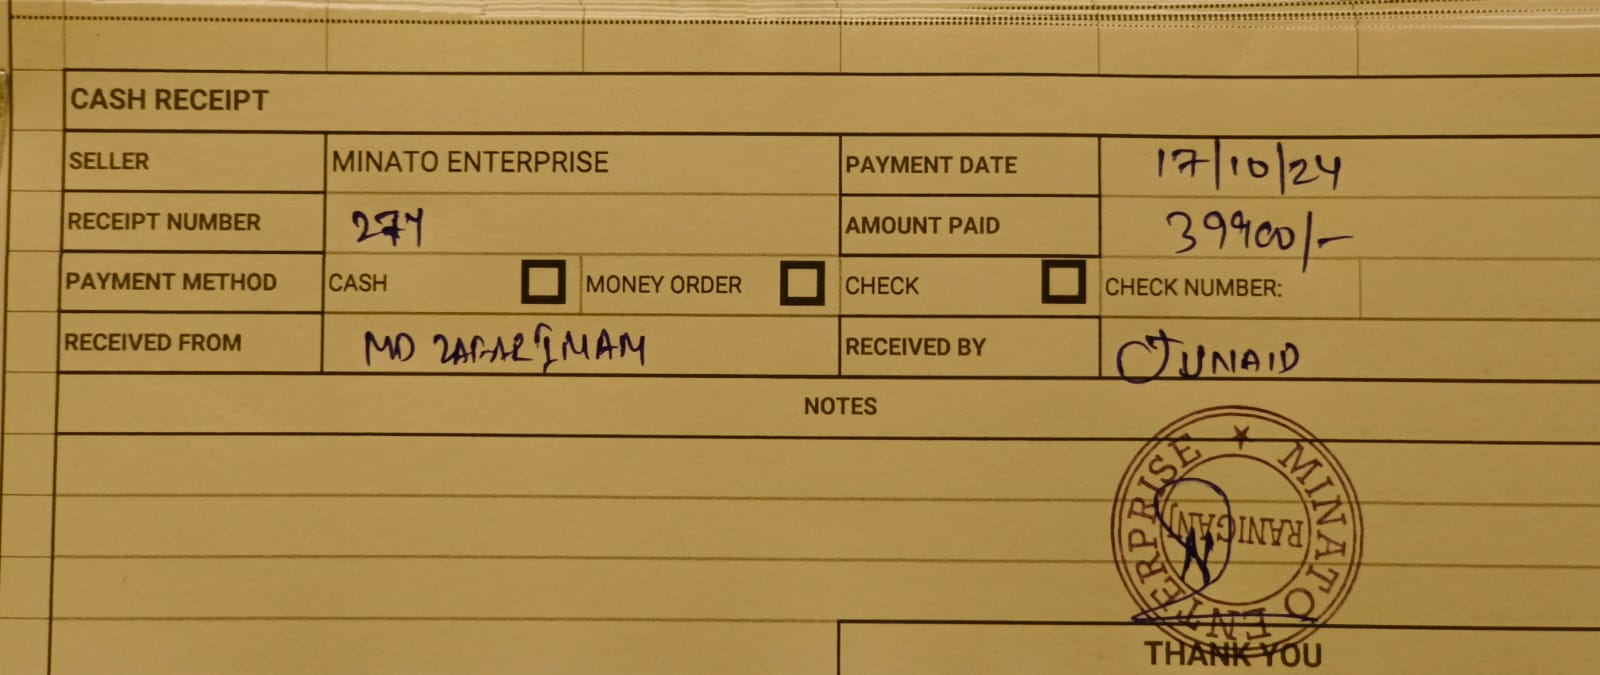 CASH RECEIPT
SELLER MINATO ENTERPRISE PAYMENT DATE 17/10/24
RECEIPT NUMBER 274 AMOUNT PAID 39900/-
PAYMENT METHOD CASH MONEY ORDER CHECK CHECK NUMBER:
RECEIVED FROM MD ZAFAR IMAM RECEIVED BY JUNAID
NOTES
MINATO ENTERPRISE
RANIGANJ
THANK YOU